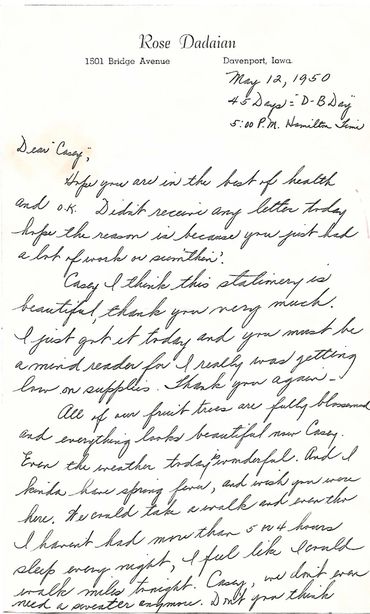 Rose Dadaian
1501 Bridge Avenue Davenport, Iowa
May 12, 1950
45 Days = "D-B Day"
5:00 P.M. Hamilton Time
Dear "Casey",
Hope you are in the best of health
and O.K. Didn't receive any letter today
hope the reason is because you just had
a lot of work or sumthin'.
Casey I think this stationery is
beautiful, thank you very much.
I just got it today and you must be
a mind reader for I really was getting
low on supplies. Thank you again —
All of our fruit trees are fully blossomed
and everything looks beautiful now Casey.
Even the weather today wonderful. And I
kinda have spring fever, and wish you were
here. We could take a walk and even tho
I havent had more than 5 or 4 hours
sleep every night, I feel like I could
walk miles tonight. Casey, we don't even
need a sweater anymore. Don't you think